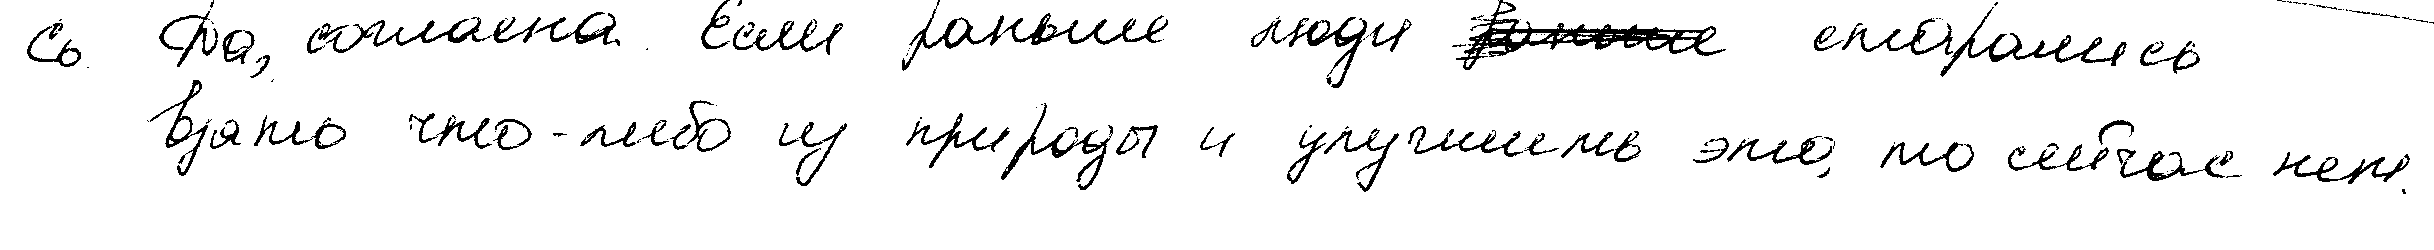 сь. Да, согласна. Если раньше люди старались
взять что-либо из природы и улучшить это, то сейчас нет.